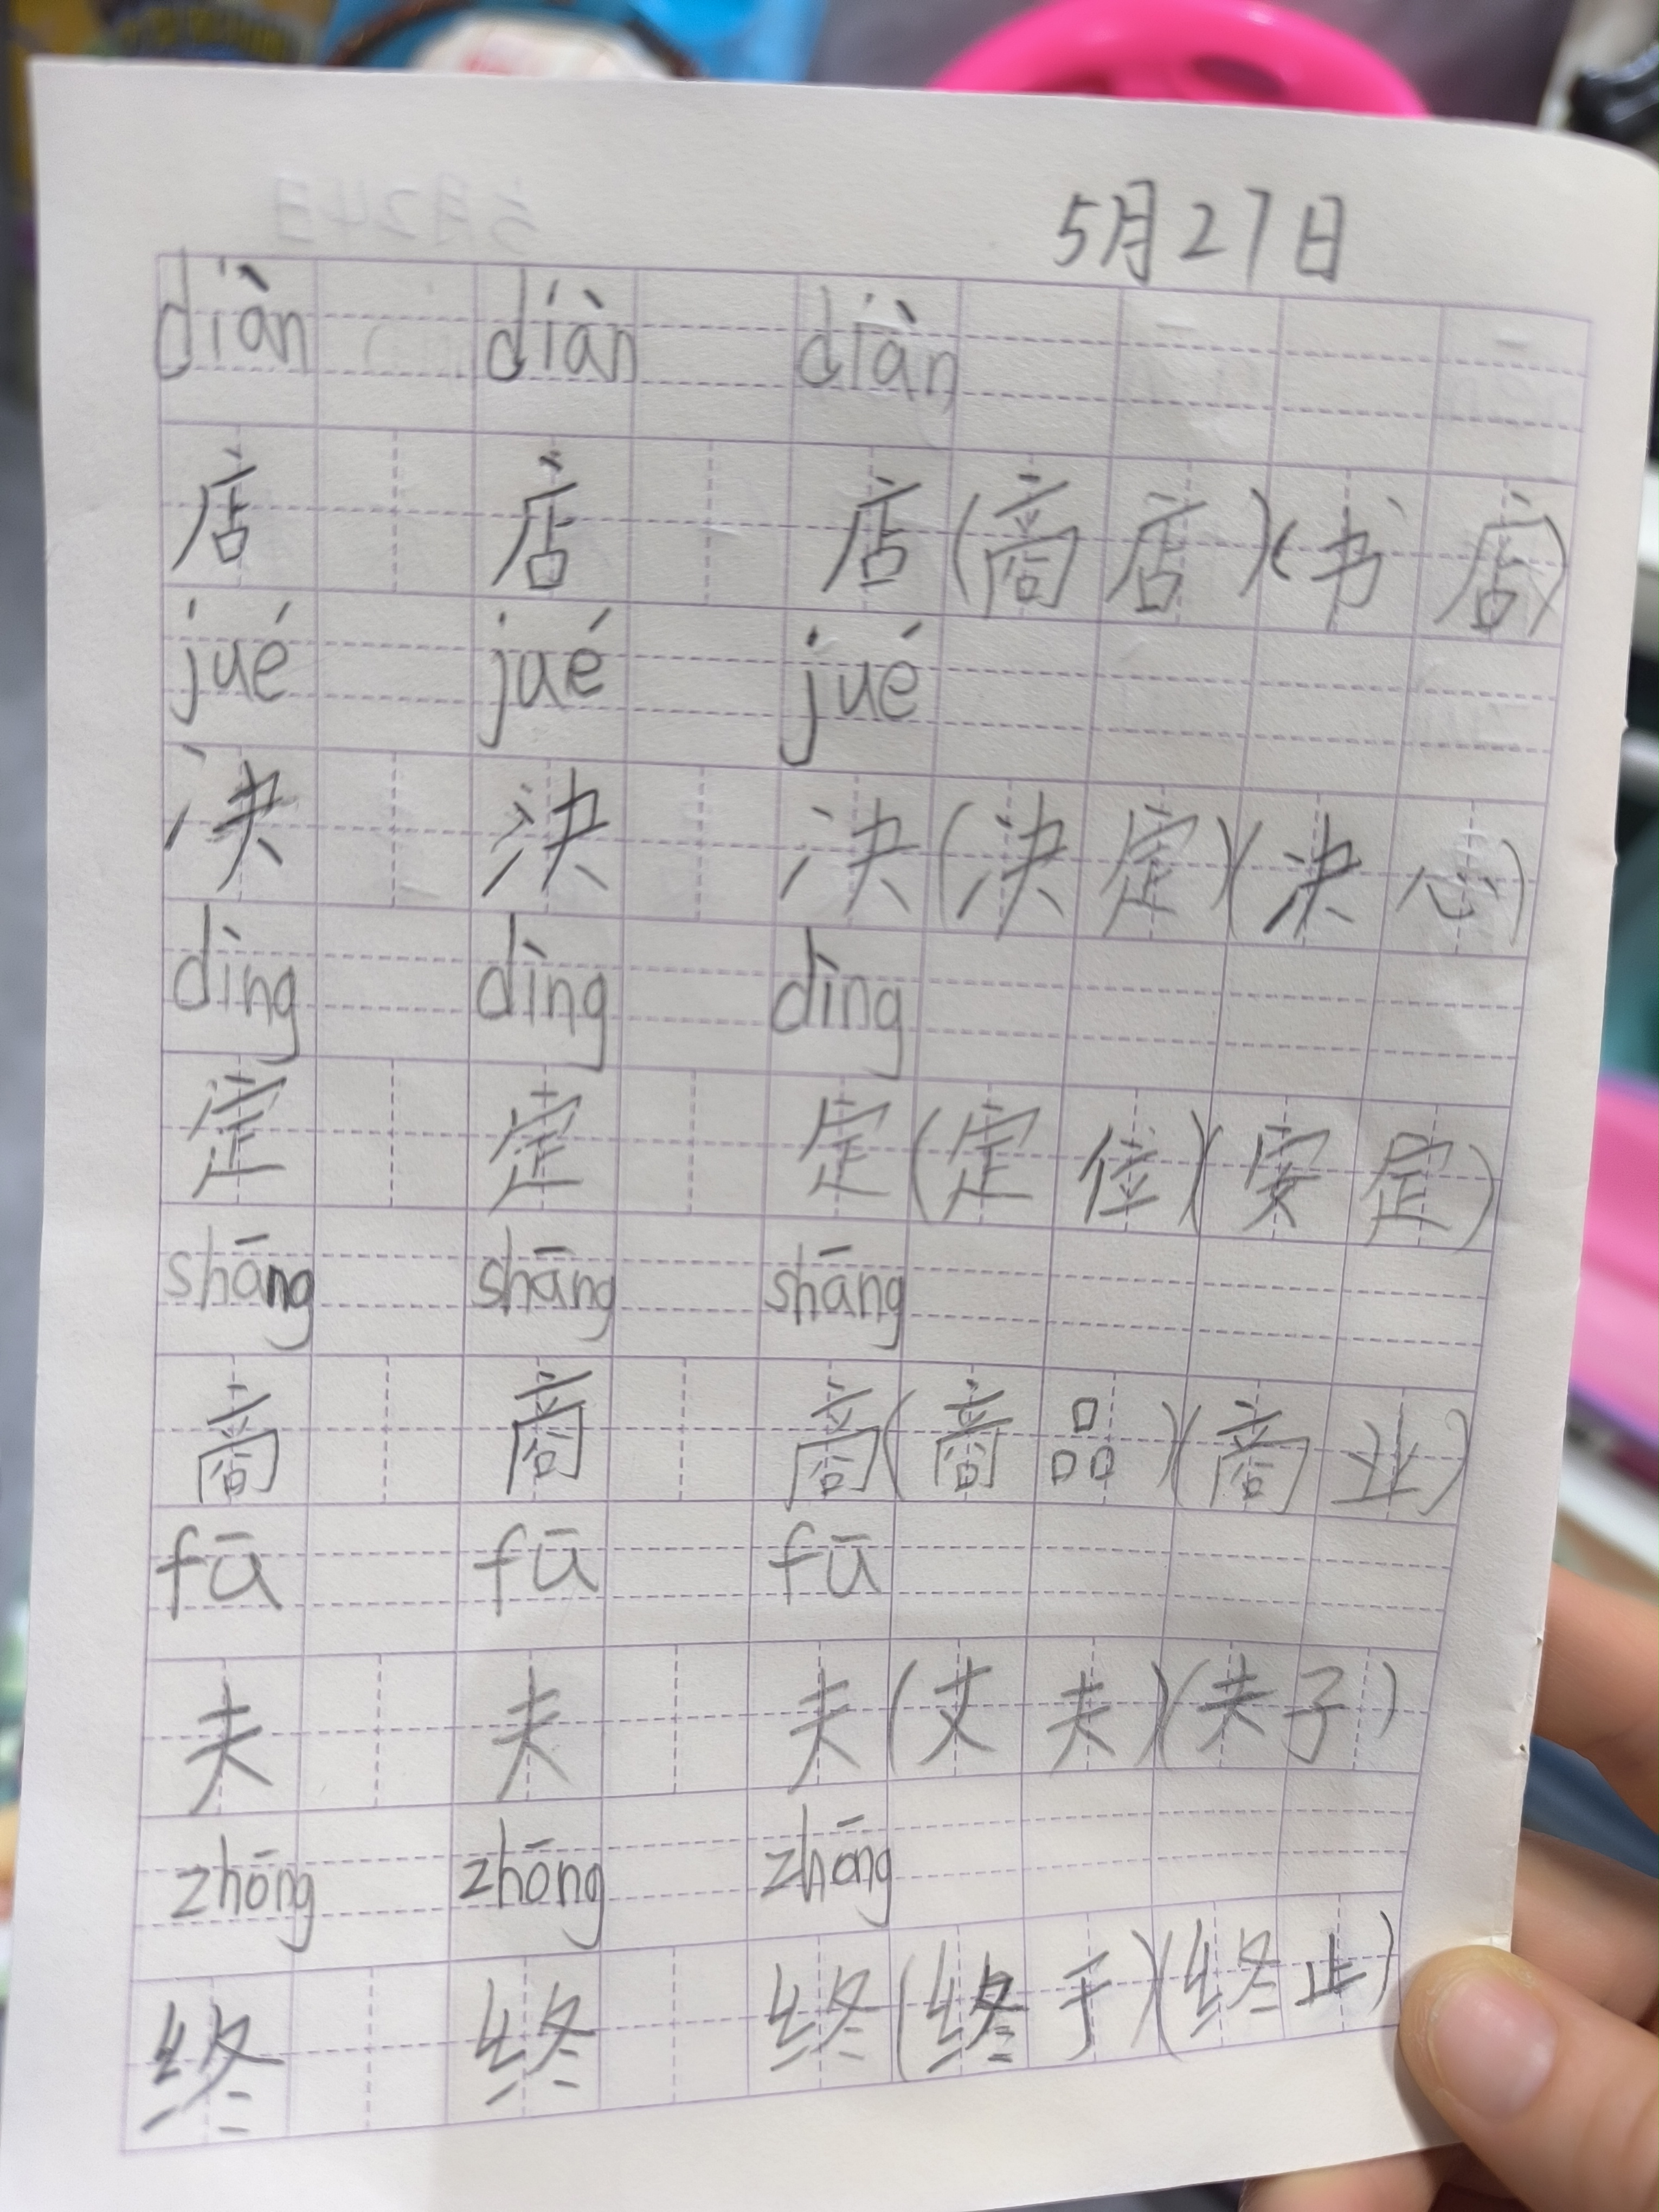 5月27日
diàn diàn diàn
店 店 店(商店)(书店)
jué jué jué
决 决 决(决定)(决心)
dìng dìng dìng
定 定 定(定位)(安定)
shāng shāng shāng
商 商 商(商品)(商业)
fū fū fū
夫 夫 夫(丈夫)(夫子)
zhōng zhōng zhōng
终 终 终(终于)(终止)